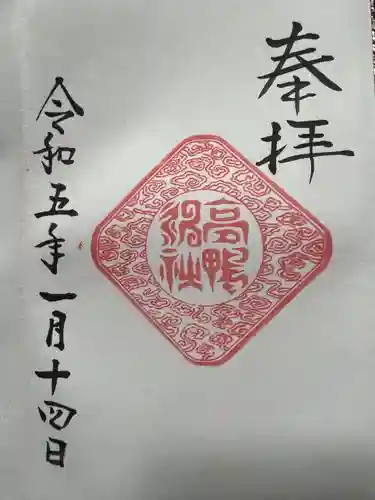 奉拝
高鴨
神社
令和五年一月十四日